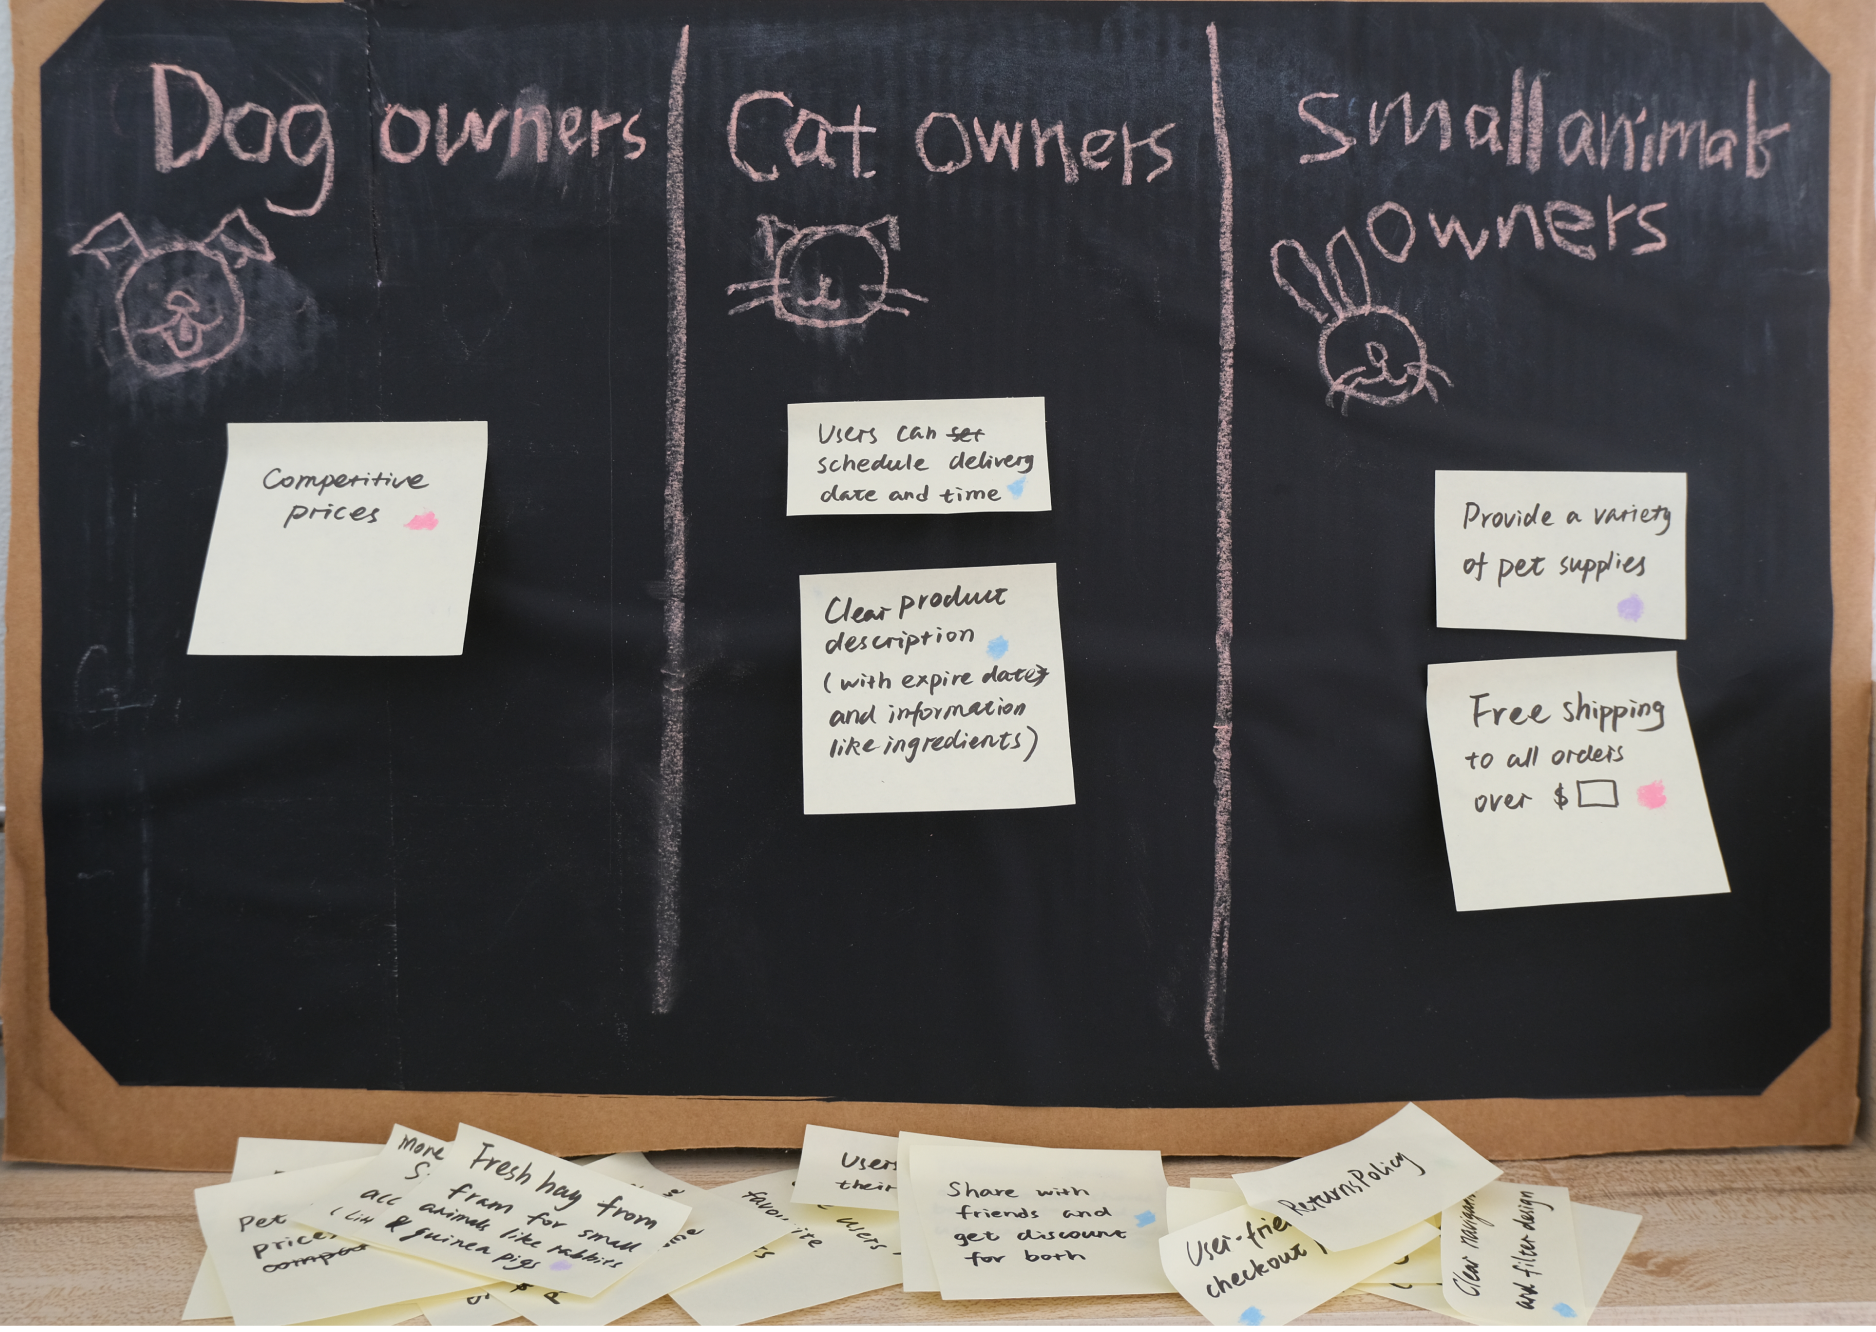 Dog owners
Cat owners
Small animals
owners
Competitive
prices
Users can set
schedule delivery
date and time
Clear product
description
(with expire dates
and information
like ingredients)
Provide a variety
of pet supplies
Free shipping
to all orders
over $
Pet
prices
more
all
Fresh hay from
fram for small
animals like rabbits
& guinea pigs
favourite
Users
their
users
Share with
friends and
get discount
for both
User-frie
checkout
Returns Policy
Clear navigati
and filter design